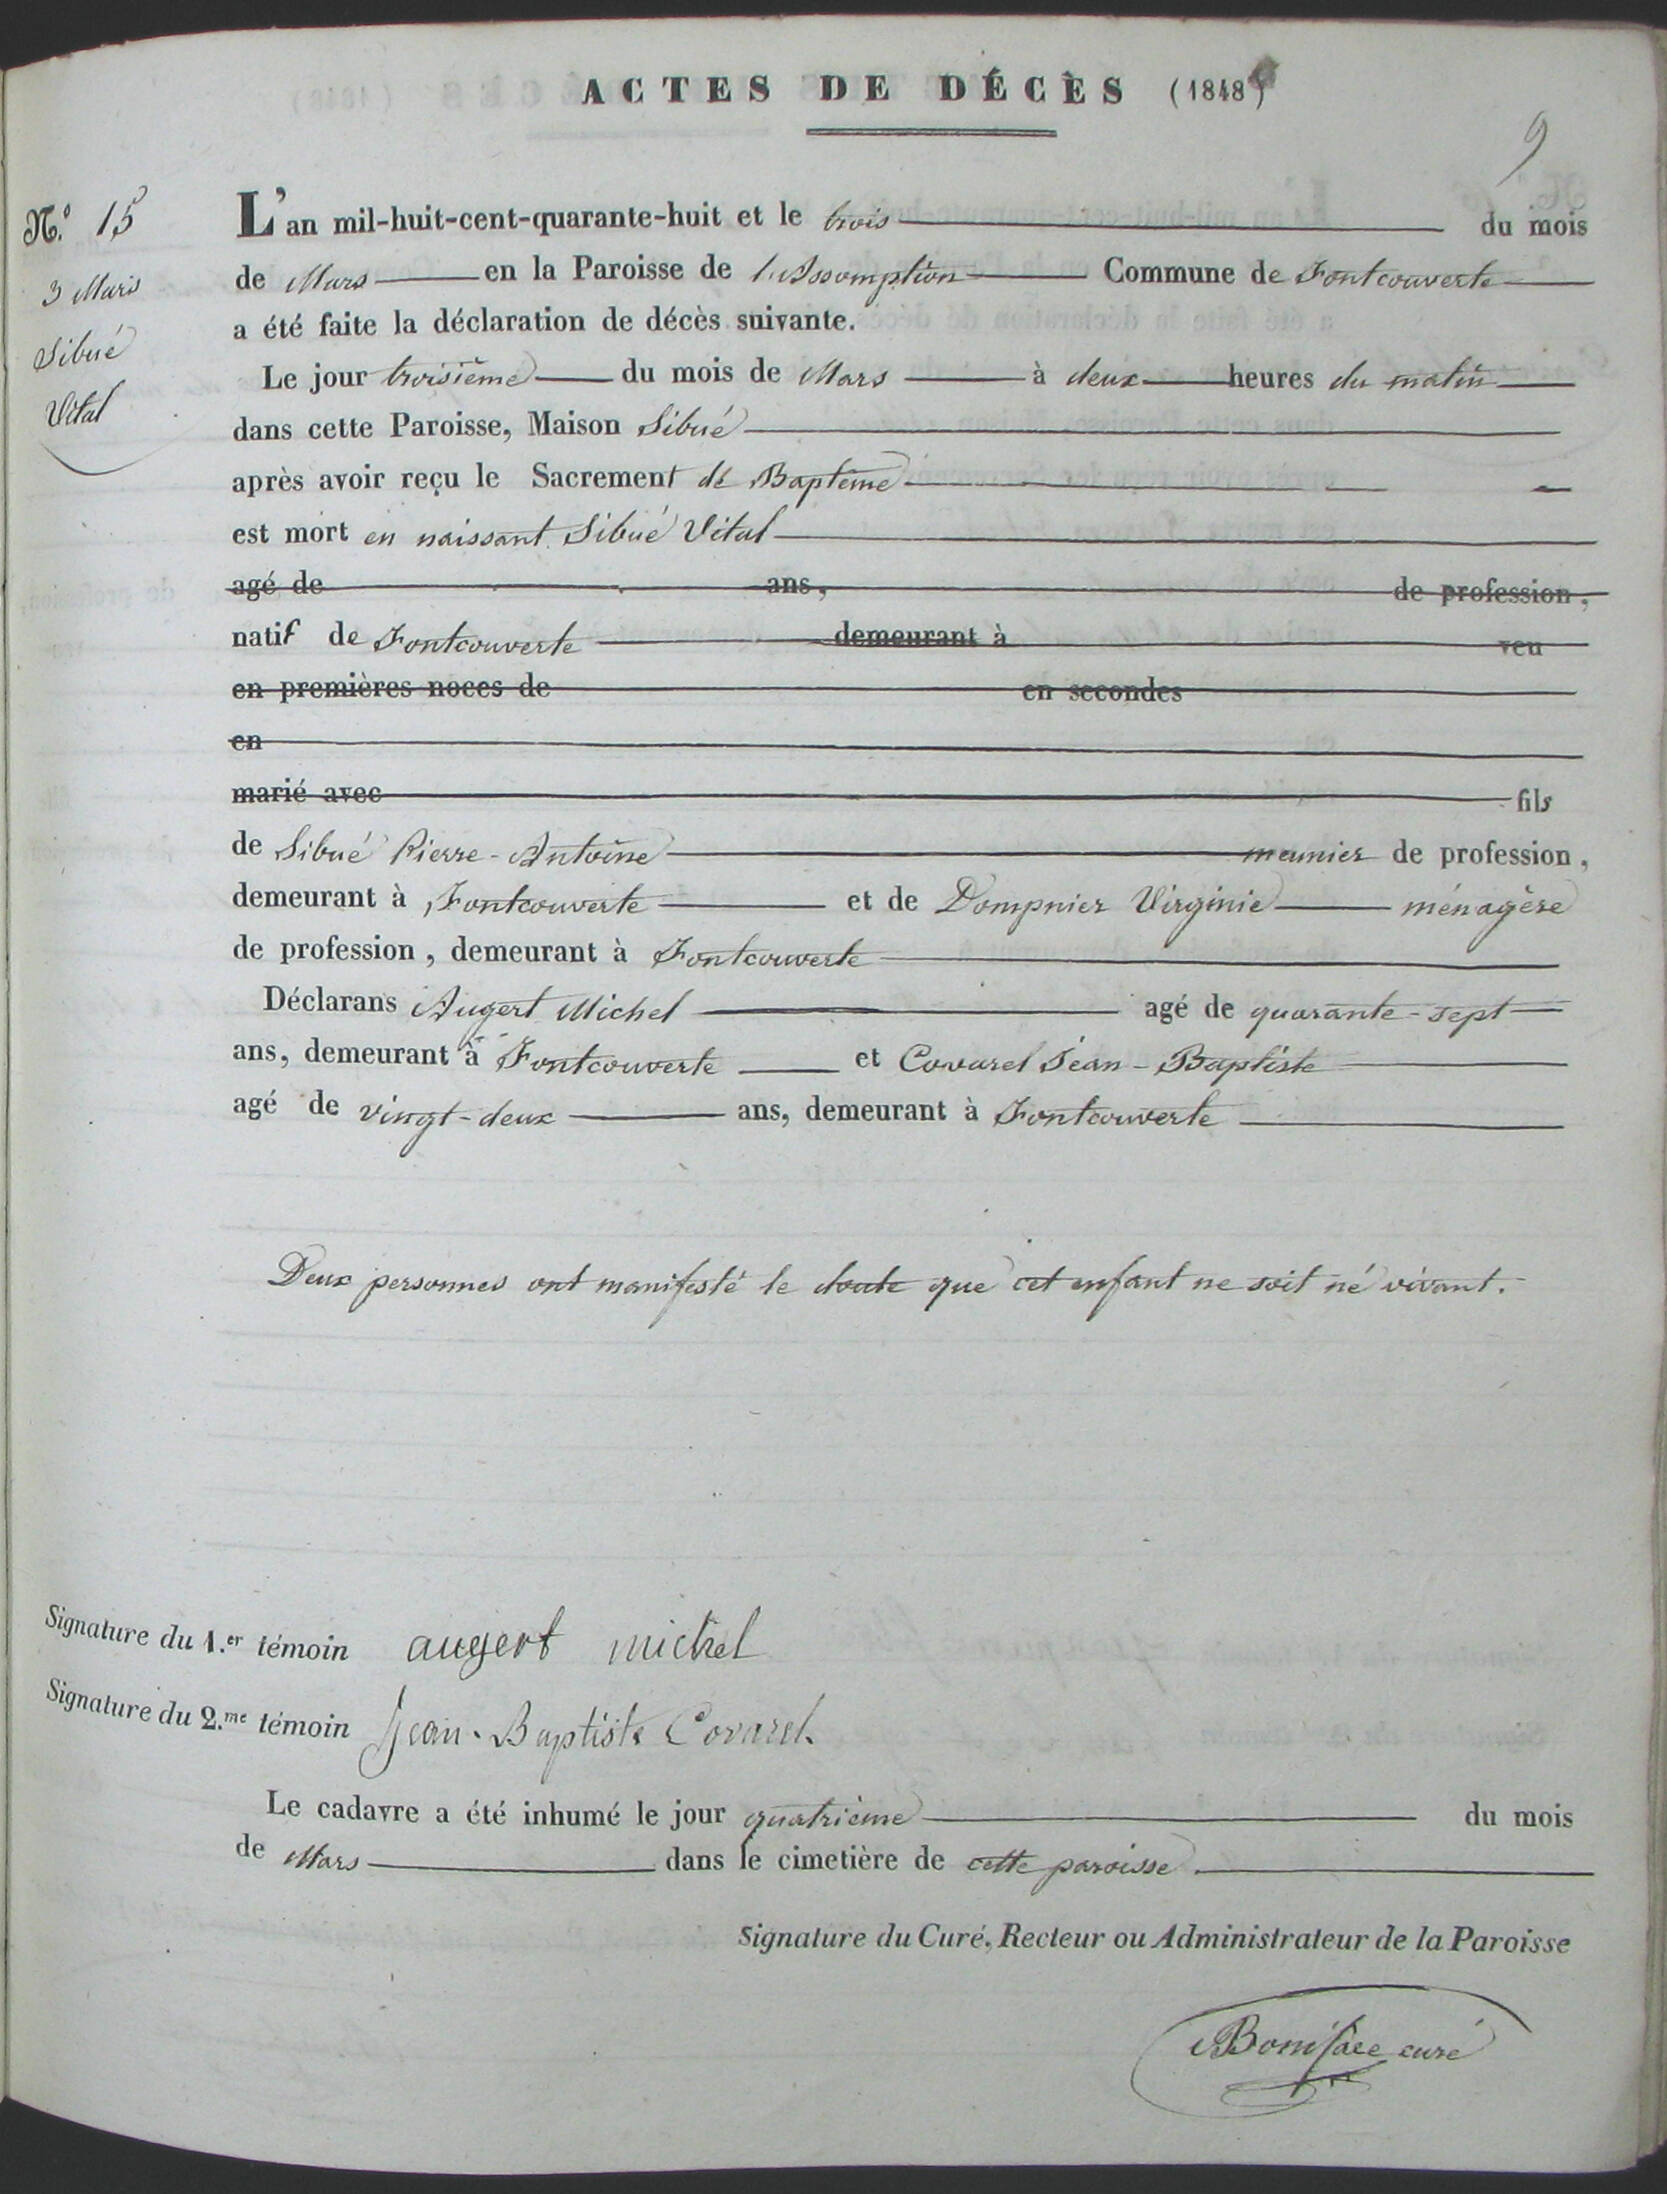 ACTES DE DÉCÈS (1848)
9
N.º 15
3 Mars
Sibué
Vital
L'an mil-huit-cent-quarante-huit et le trois du mois
de Mars en la Paroisse de l'Assomption Commune de Fontcouverte
a été faite la déclaration de décès suivante.
Le jour troisième du mois de Mars à deux heures du matin
dans cette Paroisse, Maison Sibué
après avoir reçu le Sacrement de Baptême
est mort en naissant Sibué Vital
agé de ans, de profession,
natif de Fontcouverte demeurant à veu
en premières noces de en secondes
en
marié avec fils
de Sibué Pierre-Antoine meunier de profession,
demeurant à Fontcouverte et de Dompnier Virginie ménagère
de profession, demeurant à Fontcouverte
Déclarans Augert Michel agé de quarante-sept
ans, demeurant à Fontcouverte et Covarel Jean-Baptiste
agé de vingt-deux ans, demeurant à Fontcouverte
Deux personnes ont manifesté le doute que cet enfant ne soit né vivant.
Signature du 1.er témoin augert michel
Signature du 2.me témoin Jean-Baptiste Covarel.
Le cadavre a été inhumé le jour quatrième du mois
de Mars dans le cimetière de cette paroisse.
Signature du Curé, Recteur ou Administrateur de la Paroisse
Boniface curé